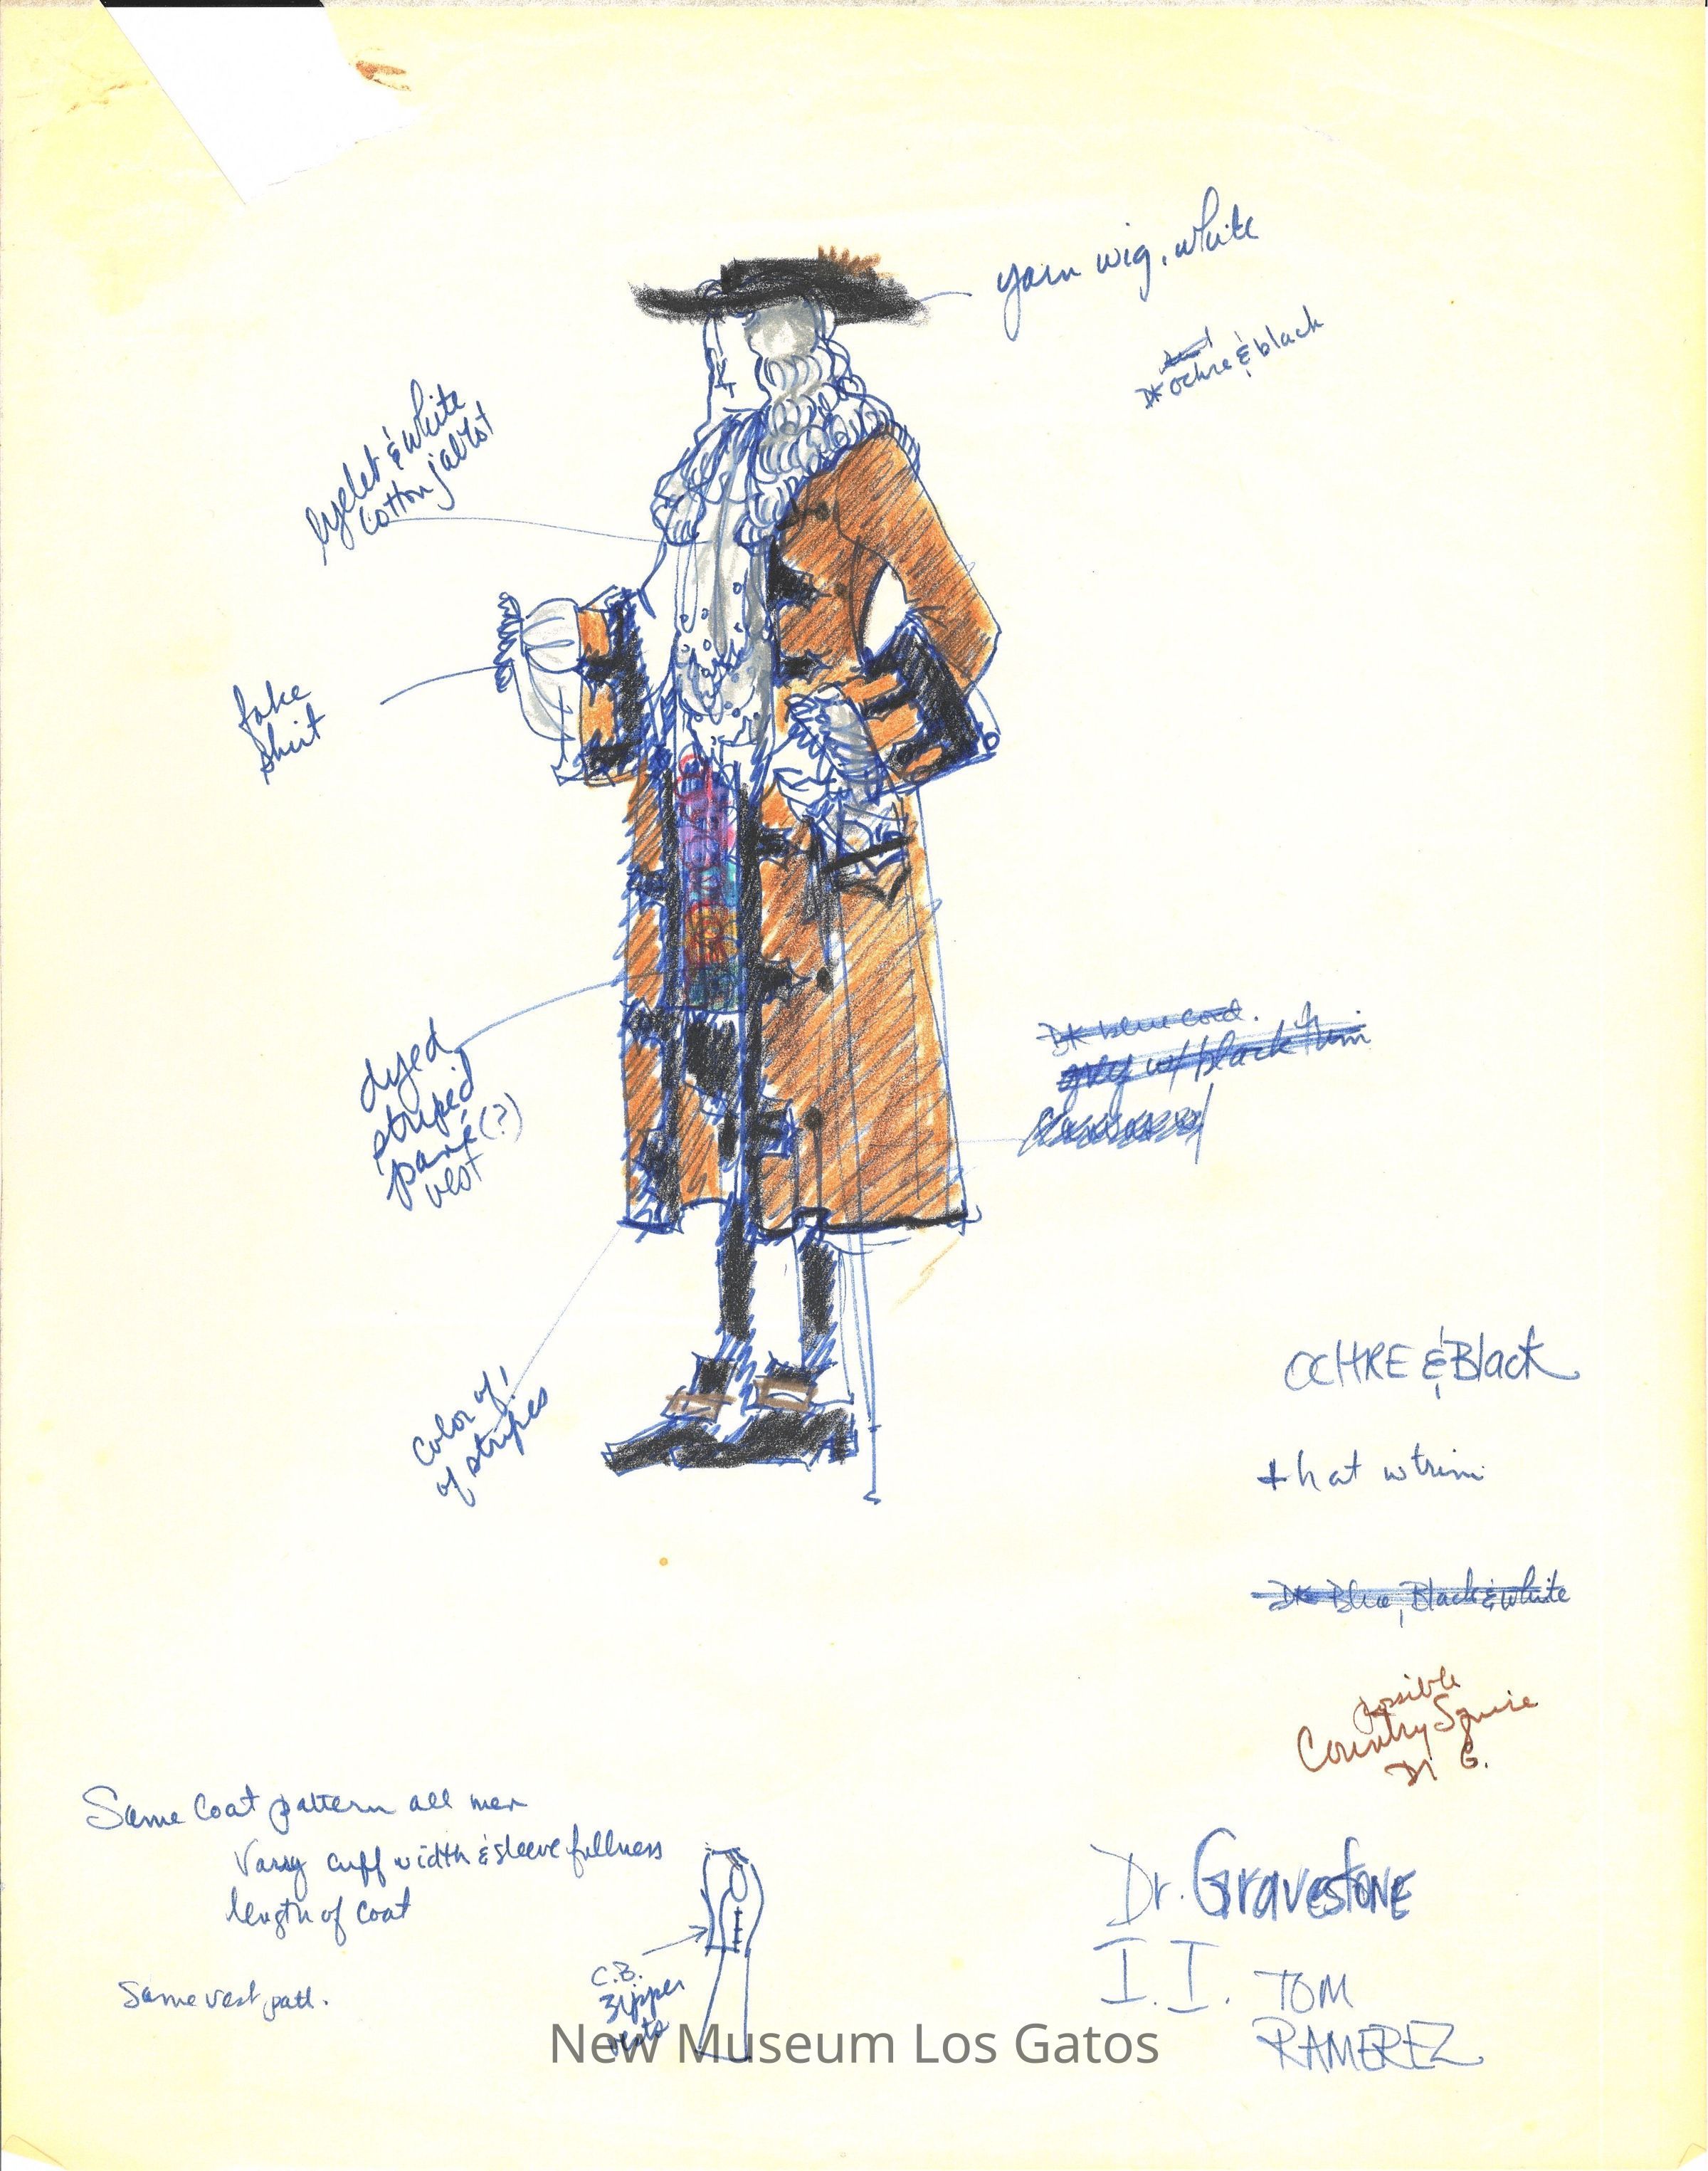 yarn wig, white
Dk ochre & black
eyelet & white
cotton jabot
fake
shirt
Dk blue cord.
grey w/ black trim
dyed
striped
pané (?)
vest
OCHRE & Black
color of!
of stripes
+ hat w trim
Dk Blue, Black & white
possible
Country Squire
Dr G.
Same Coat pattern all men
Vary cuff width & sleeve fullness
length of coat
Same vest patt.
C.B.
zipper
vests
Dr. Gravestone
I.I. TOM
RAMEREZ
New Museum Los Gatos